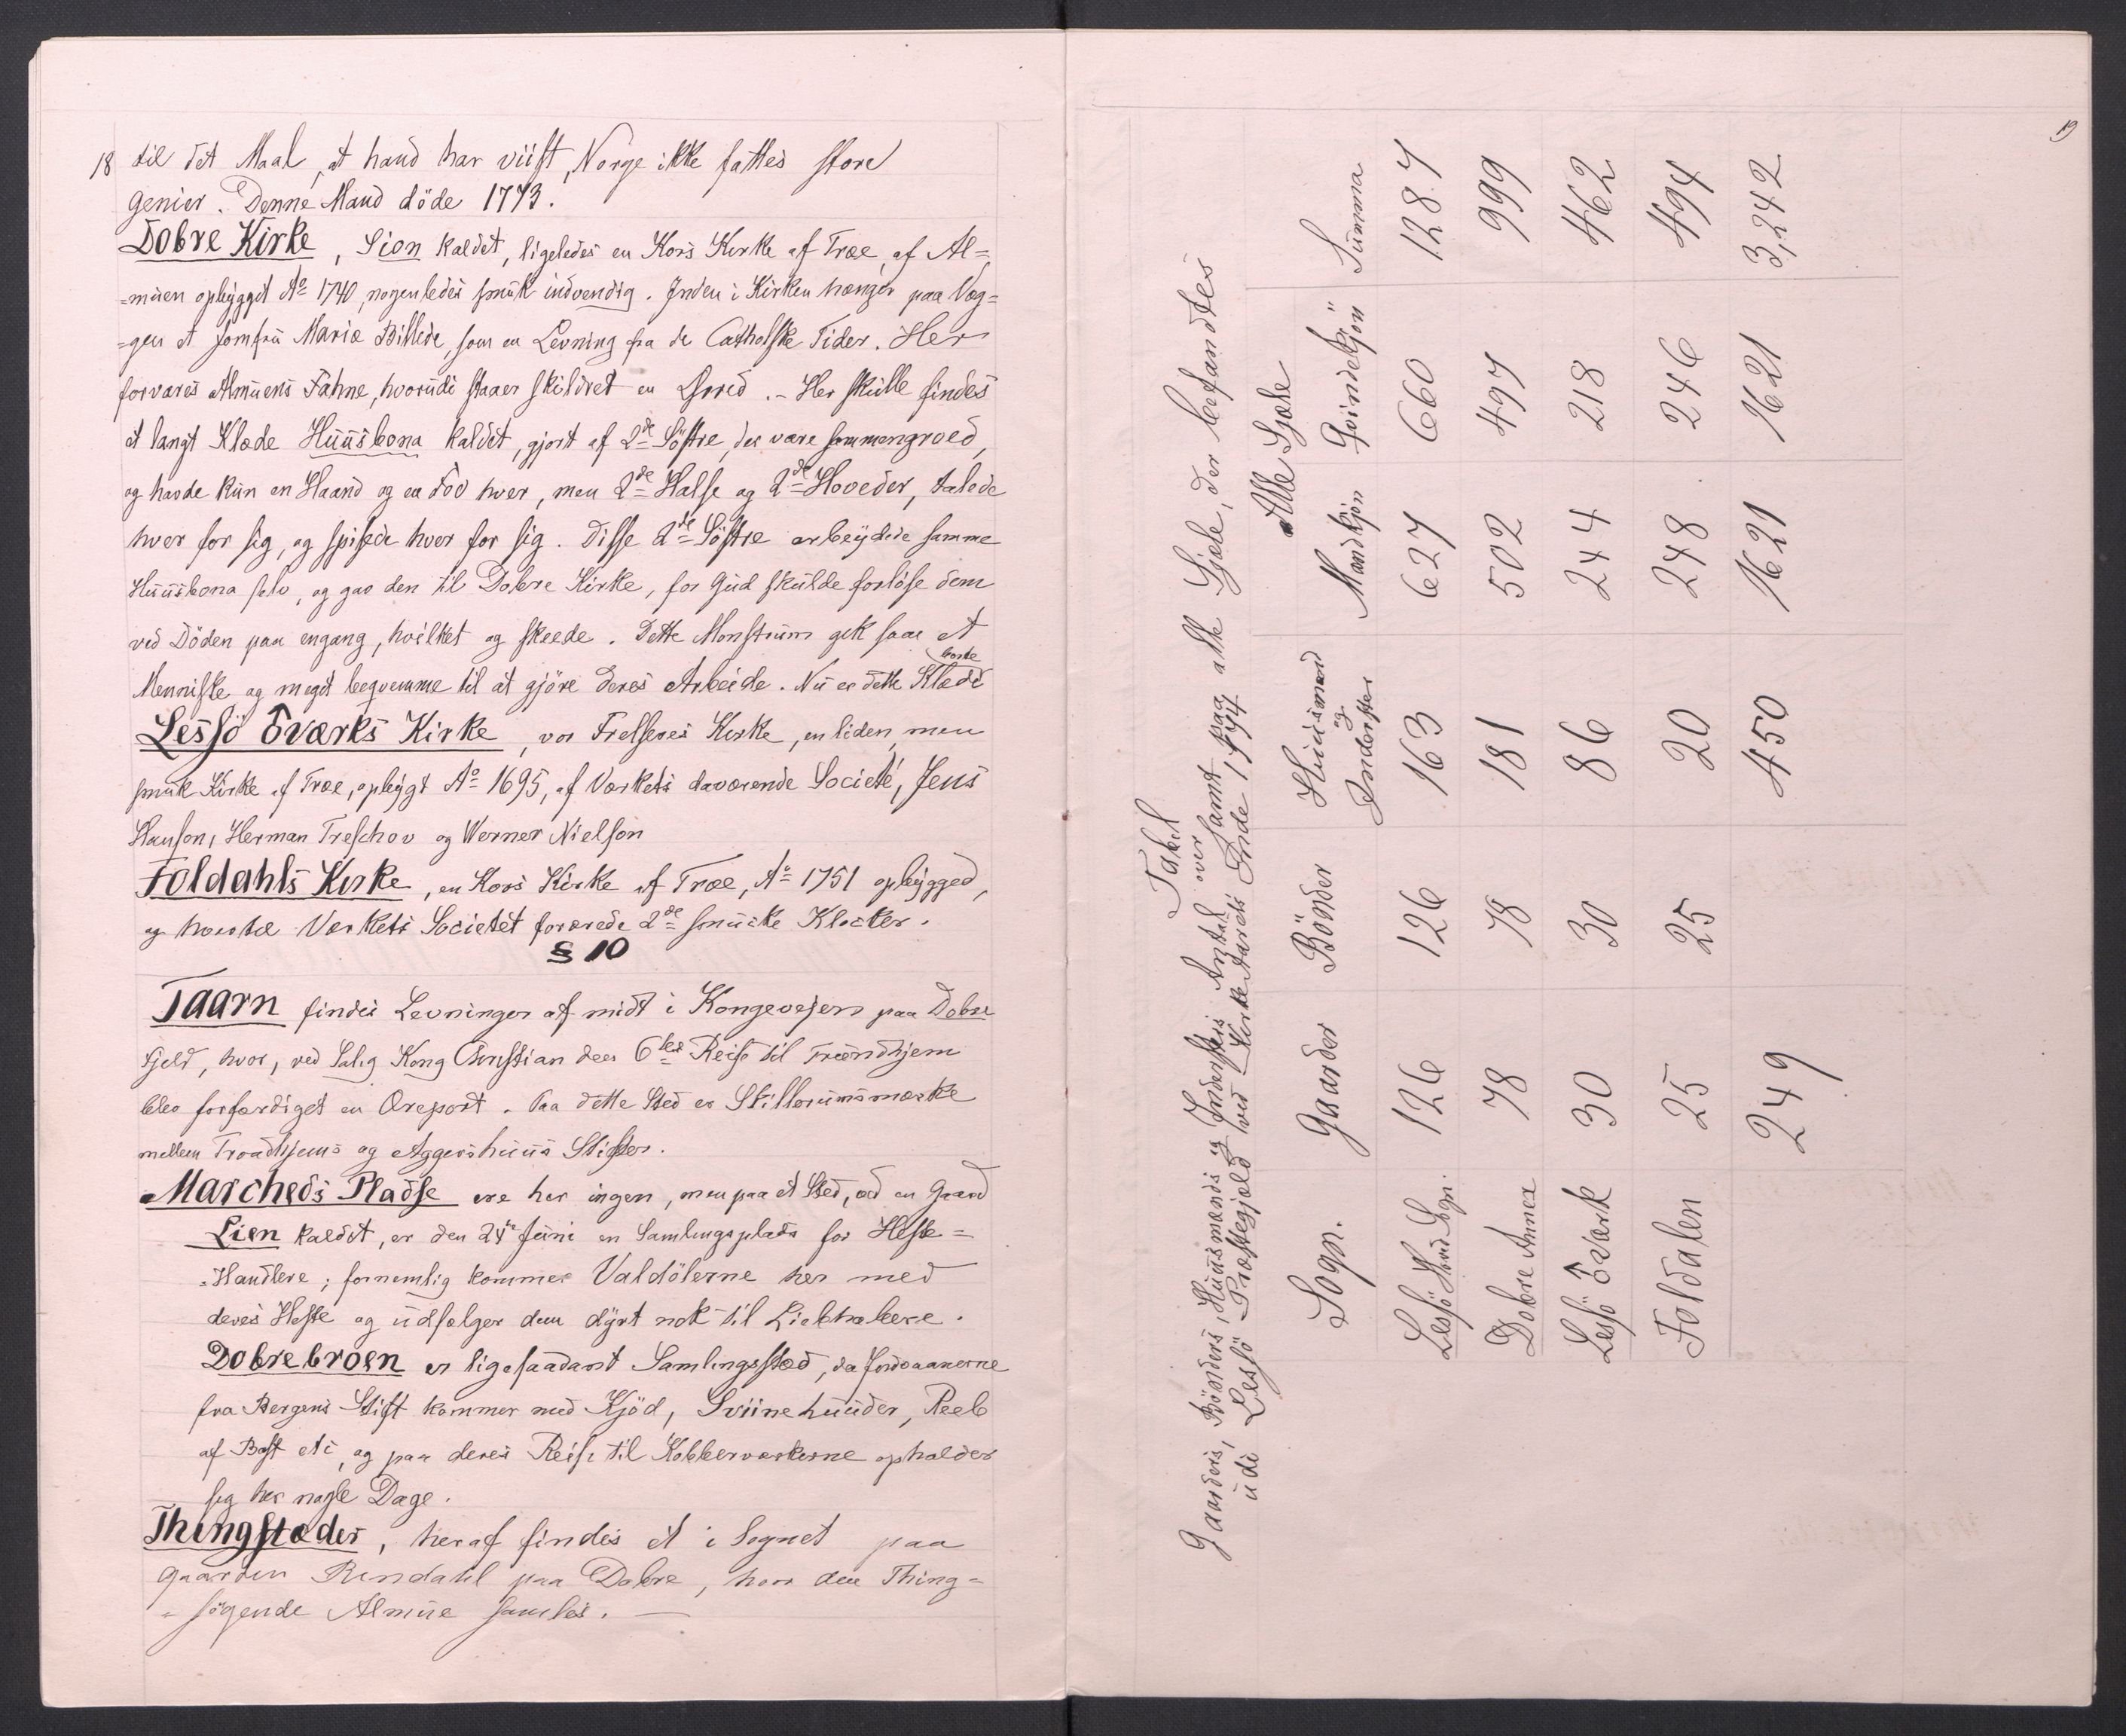 18 til det Maal, at hand har viist, Norge ikke fattes store
Genier. Denne Mand döde 1773.
Dobre Kirke, Sion kaldet, ligeledes en Kors Kirke af Træ, af Al=
=müen opbÿgget Aº 1740, nogenledes smük indvendig. Inden i Kirken hænger paa Væg=
=gen et Jomfrü Mariæ Billede, som en Levning fra de Catholske Tider. Her
forvares Almüens Fahne, hvorüdi staaer skildret en . – Her skülle findes
et langt Klæde Hüüsbona kaldet, gjort af 2de Söstre, der vare sammengroed,
og havde kün en Haand og en Fod hver, men 2de Halse og 2de Hoveder, talede
hver for sig, og spisede hver for sig. Disse 2de Söstre arbeÿdede samme
Hüüsbona selv, og gav den til Dobre Kirke, for Gud skülde forlöse dem
ved Döden paa engang, hvilket og skeede. Dette Monstrüm gik som et
Menniske og meget beqvemme til at gjöre deres Arbeide. Nü er dette Klæde borte
Lessö Værks Kirke, vor Frelseres Kirke, en liden, men
smük Kirke af Træ, opbÿgt Aº 1695, af Værkets daværende Societé, Jens
Hanson, Herman Treschov og Werner Nielson
Foldahls Kirke, en Kors Kirke af Træ, Aº 1751 opbÿgged,
og hvortil Værkets Societet forærede 2de smücke Klocker.
§ 10
Taarn findes Levninger af midt i Kongevejen paa Dobre
Fjeld, hvor, ved Salig Kong Christian den 6tes Reise til Trondhjem
blev forfærdiget en Æreport. Paa dette Sted er Skillerümsmærke
mellem Trondhjems og Aggershüüs Stifter.
Marcheds Pladse ere her ingen, men paa et Sted, ved en Gaard
Lien kaldet, er den 24de Jüni en Samlingsplads for Heste=
=Handlere; fornemlig kommer Valdölerne her med
deres Heste og üdsælger dem dÿrt nok til Liebhabere.
Dobrebroen er ligesaadant Samlingssted, da
fra Bergens Stift kommer med Kjöd, Sviinehüüder, Reeb
af Bast etc, og paa deres Reise til Kobberværkerne opholder
sig her nogle Dage.
Thingstæder, heraf findes et i Sognet paa
Gaarden Rindahl paa Dobre, hvor den Thing=
=sögende Almüe samles. —
19
Tabel
over
Gaarders, Bönders, Hüüsmænds og Inderstes Antal samt paa alle Sjæle, der befandtes
üdi Lessö Præstegjæld ved Kirke Aarets Ende 1774
Alle Sjæle
Sogn. Gaarder Bönder Hüüsmænd og Inderster Mandkjön Qvindekjön Summa
Lessö Hoved Sogn. 126 126 163 627 660 1287
Dobre Annex 78 78 181 502 497 999
Lessö Værk 30 30 86 244 218 462
Foldalen 25 25 20 248 246 494
249 450 1621 1621 3,242